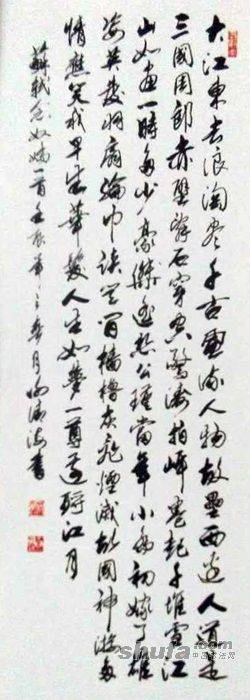 大江東去浪淘盡千古風流人物故壘西邊人道是
三國周郎赤壁亂石穿空驚濤拍岸卷起千堆雪江
山如畫一時多少豪傑遙想公瑾當年小喬初嫁了雄
姿英發羽扇綸巾談笑間檣櫓灰飛煙滅故國神游多
情應笑我早生華髮人生如夢一尊還酹江月
蘇軾念奴嬌一首壬辰年之 月 書
shufa.com
中国书法网